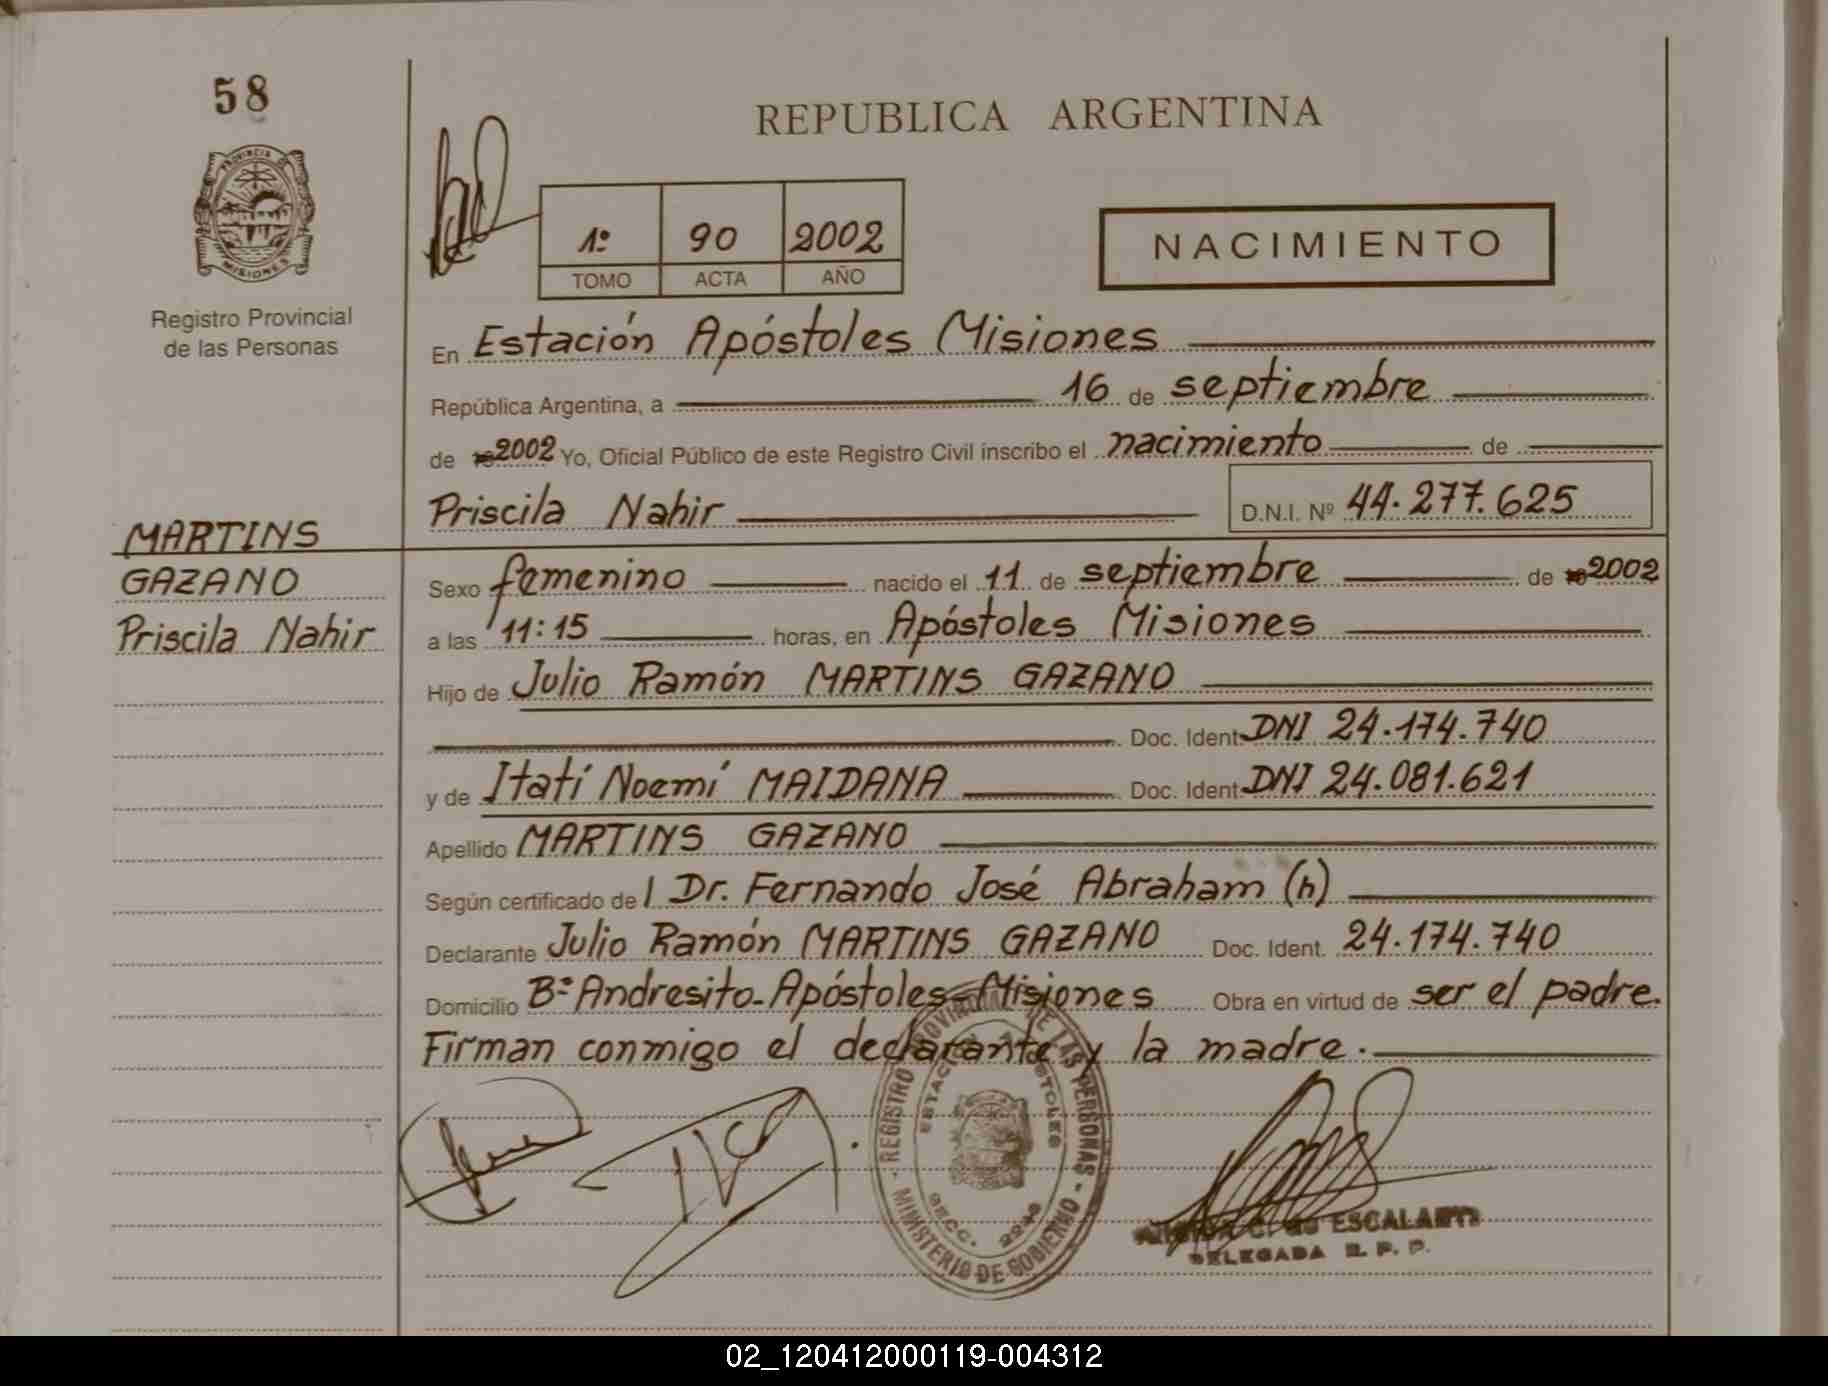 58
REPUBLICA ARGENTINA
PROVINCIA DE
MISIONES
Registro Provincial
de las Personas
1º 90 2002
TOMO ACTA AÑO
NACIMIENTO
En Estación Apóstoles Misiones
República Argentina, a 16 de septiembre
de 2002 Yo, Oficial Público de este Registro Civil inscribo el nacimiento de
Priscila Nahir D.N.I. Nº 44.277.625
MARTINS
GAZANO
Priscila Nahir
Sexo femenino nacido el 11 de septiembre de 2002
a las 11:15 horas, en Apóstoles Misiones
Hijo de Julio Ramón MARTINS GAZANO
Doc. Ident. DNI 24.174.740
y de Itatí Noemí MAIDANA Doc. Ident. DNI 24.081.621
Apellido MARTINS GAZANO
Según certificado de l Dr. Fernando José Abraham (h)
Declarante Julio Ramón MARTINS GAZANO Doc. Ident. 24.174.740
Domicilio Bº Andresito-Apóstoles-Misiones Obra en virtud de ser el padre.
Firman conmigo el declarante y la madre.
REGISTRO PROVINCIAL DE LAS PERSONAS - MINISTERIO DE GOBIERNO -
ESTACION APOSTOLES
SECC.
C. de ESCALANTE
DELEGADA R. P. P.
02_120412000119-004312